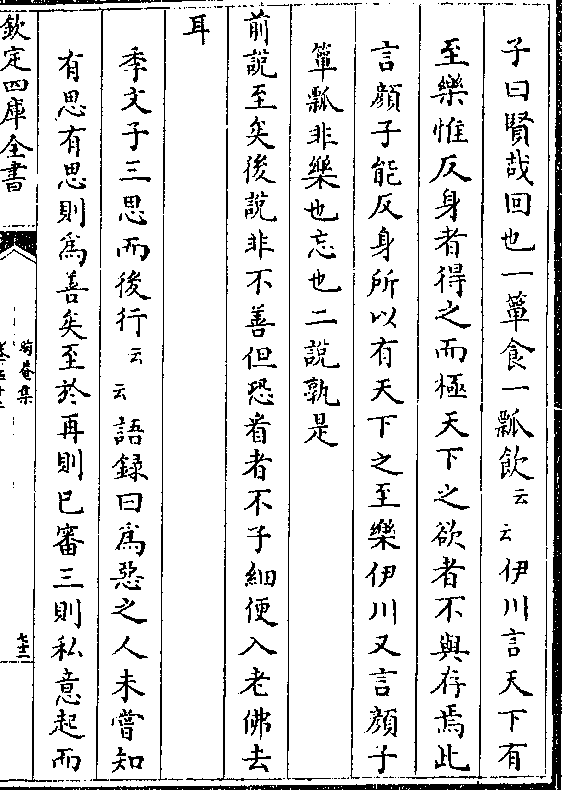 子曰賢哉回也一簞食一瓢飲云云伊川言天下有
至樂惟反身者得之而極天下之欲者不與存焉此
言顔子能反身所以有天下之至樂伊川又言顔子
簞瓢非樂也忘也二說孰是
前說至矣後說非不善但恐看者不子細便入老佛去
耳
季文子三思而後行云云語録曰爲惡之人未嘗知
有思有思則爲善矣至於再則已審三則私意起而
欽定四庫全書